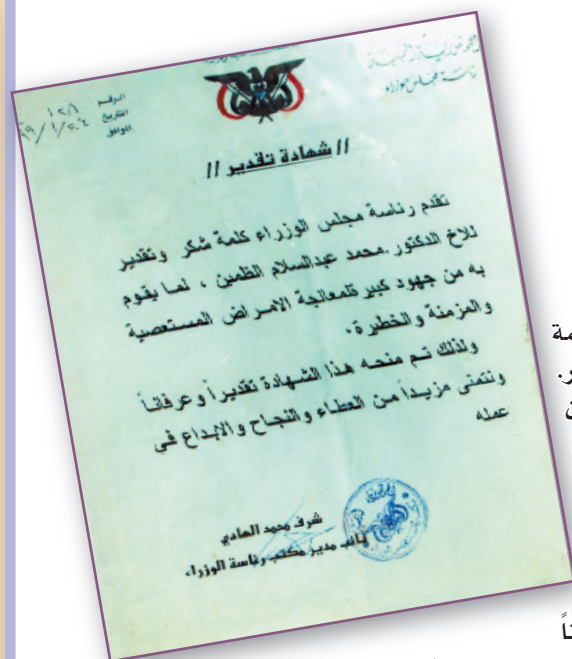 الجمهورية اليمنية
رئاسة مجلس الوزراء
الرقم ١٢٨
التاريخ
الموافق
// شهادة تقدير //
تقدم رئاسة مجلس الوزراء كلمة شكر وتقدير
للاخ الدكتور.محمد عبدالسلام الظمين ، لما يقوم
به من جهود كبير قلمعالجة الامراض المستعصية
والمزمنة والخطيرة .
ولذلك تم منحه هذا الشهادة تقديراً وعرفاناً
ونتمنى مزيداً من العطاء والنجاح والابداع في
عمله
شرف محمد الهادي
نائب مدير مكتب رئاسة الوزراء